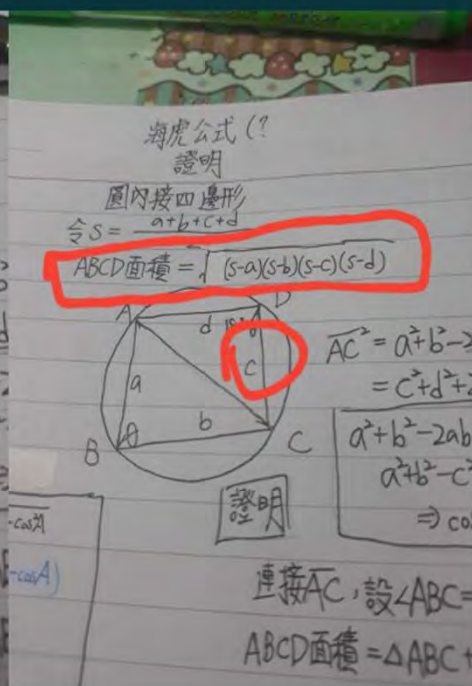 海虎公式(?
證明
圓內接四邊形
令S= a+b+c+d
ABCD面積=√(s-a)(s-b)(s-c)(s-d)
A
D
d
a
c
b
B
C
AC²=a²+b²-2
=c²+d²+2
a²+b²-2ab
a²+b²-c²
⇒ co
證明
連接AC,設∠ABC=
ABCD面積=△ABC+
-cos²A
-cosA)